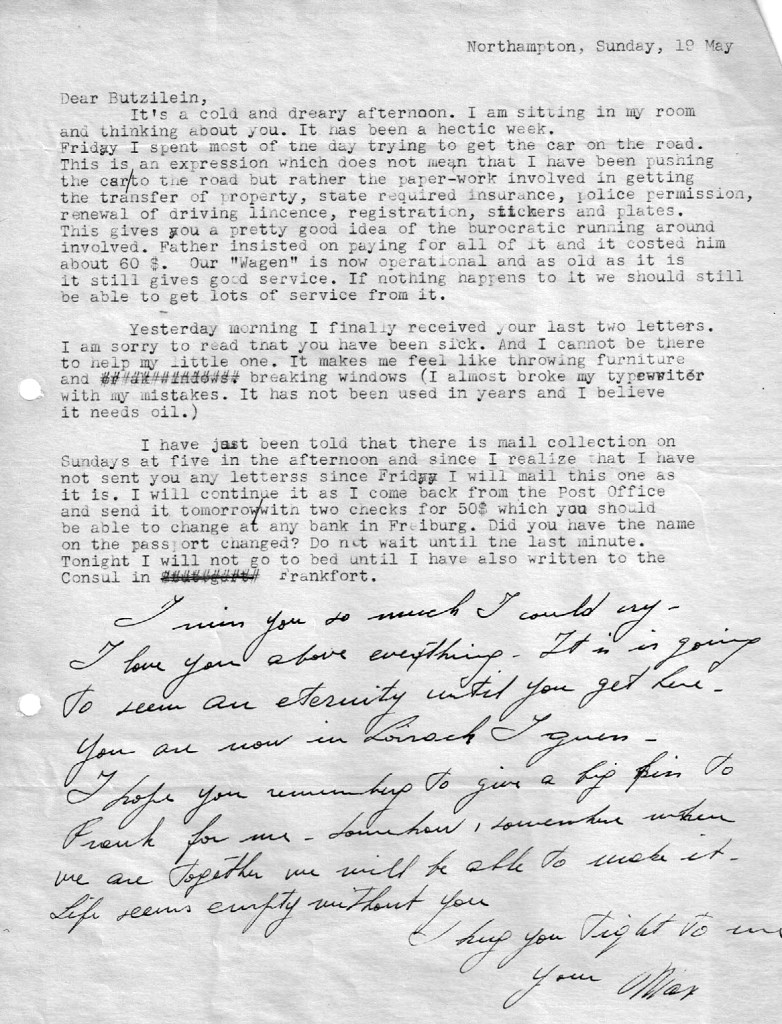 Northampton, Sunday, 19 May
Dear Butzilein,
It's a cold and dreary afternoon. I am sitting in my room
and thinking about you. It has been a hectic week.
Friday I spent most of the day trying to get the car on the road.
This is an expression which does not mean that I have been pushing
the car/to the road but rather the paper-work involved in getting
the transfer of property, state required insurance, police permission,
renewal of driving lincence, registration, stickers and plates.
This gives you a pretty good idea of the burocratic running around
involved. Father insisted on paying for all of it and it costed him
about 60 $. Our "Wagen" is now operational and as old as it is
it still gives good service. If nothing happens to it we should still
be able to get lots of service from it.
Yesterday morning I finally received your last two letters.
I am sorry to read that you have been sick. And I cannot be there
to help my little one. It makes me feel like throwing furniture
and breaking windows (I almost broke my typewriter
with my mistakes. It has not been used in years and I believe
it needs oil.)
I have just been told that there is mail collection on
Sundays at five in the afternoon and since I realize that I have
not sent you any letterss since Friday I will mail this one as
it is. I will continue it as I come back from the Post Office
and send it tomorrow/with two checks for 50$ which you should
be able to change at any bank in Freiburg. Did you have the name
on the passport changed? Do not wait until the last minute.
Tonight I will not go to bed until I have also written to the
Consul in Frankfort.
I miss you so much I could cry-
I love you above everything- It is is going
to seem an eternity until you get here-
You are now in Lörrach I guess-
I hope you remember to give a big kiss to
Frank for me- Somehow, somewhere when
we are together we will be able to make it-
Life seems empty without you
I hug you tight to me
your Max